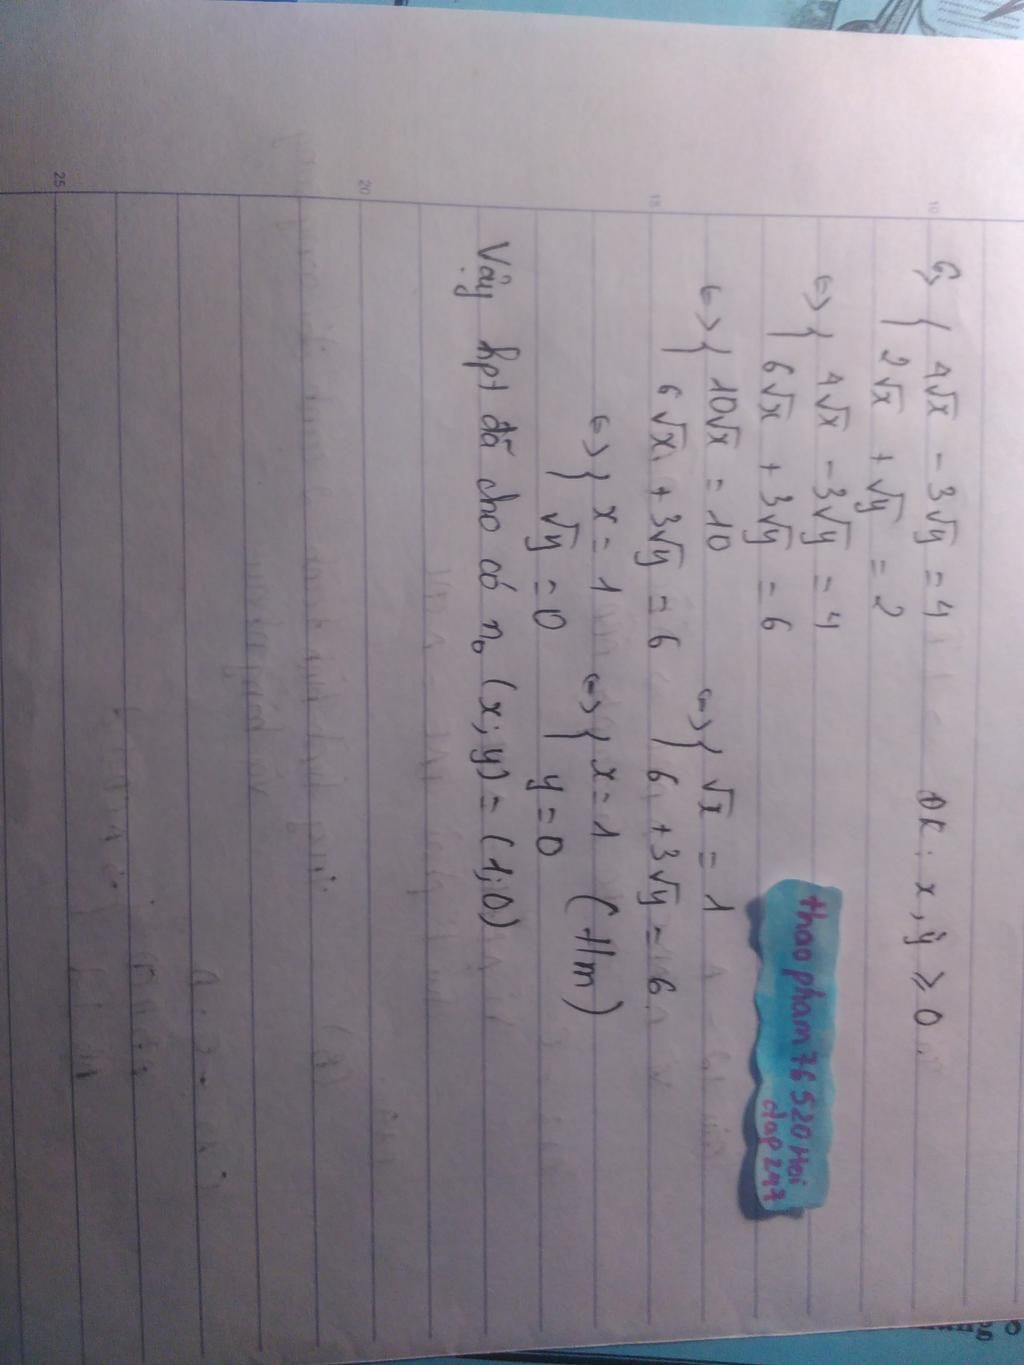 { 4√x - 3√y = 4 ĐK: x, y ≥ 0
2√x + √y = 2
<=> { 4√x - 3√y = 4
6√x + 3√y = 6
<=> { 10√x = 10 <=> { √x = 1
6√x + 3√y = 6 6 + 3√y = 6
<=> { x = 1 <=> { x = 1 (t/m)
√y = 0 y = 0
Vậy hpt đã cho có n₀ (x; y) = (1; 0)
thao pham 76 520 Hoi
dap 247
10
15
20
25